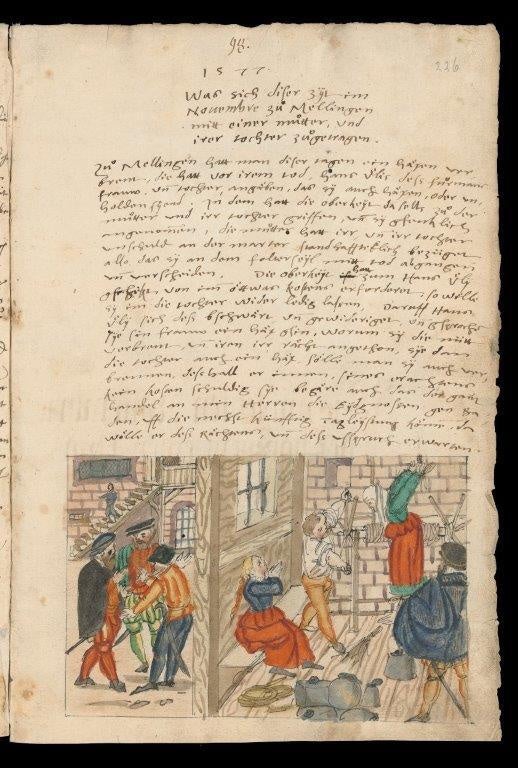 98.
226
1577.
Was sich diser zÿt im
Nouembre zů Mellingen
mitt einer můtter, und
irer tochter zůgetragen.
Zů Mellingen hatt man diser tagen ein häxen ver
brent, die hatt vor irem tod, Hans Ulis deß fůrmans
frauw, un tochter, angäben, das sÿ auch häxen, oder un
holden syend. In dem hatt die oberkeÿt daselbs zů der
můtter und irr tochter griffen, un sÿ gfenklich
angenomen, die můtter hatt irr un irr tochter
unschuld an der marter standhafftiklich bezüget
also, das sÿ an dem folterseyl mitt tod abgangen
un verscheiden. Die oberkeÿt hatt zum Hans Uli
geschikt von im ettwas kostens erforderet, so wölle
sÿ im die tochter wider ledig lassen. Daruff Hans
Uli sich deß bschwärt un gewideriget, ursach
sÿe sin frauw ein häx gsin, worum sÿ die nitt
verbrent, un iren irr rächt angethon, sÿe dan
die tochter auch ein häx, sölle man sÿ auch ver
brennen, deßhalb er innen, sines erachtens
kein kosten schuldig sÿe, begäre auch das der gantz
handel an mein Herren die Eÿdgnossen, gen Ba
den, uff die nechst künfftig tagleistung köme, da
wölle er deß Rächtens, un deß ußspruch erwarten.